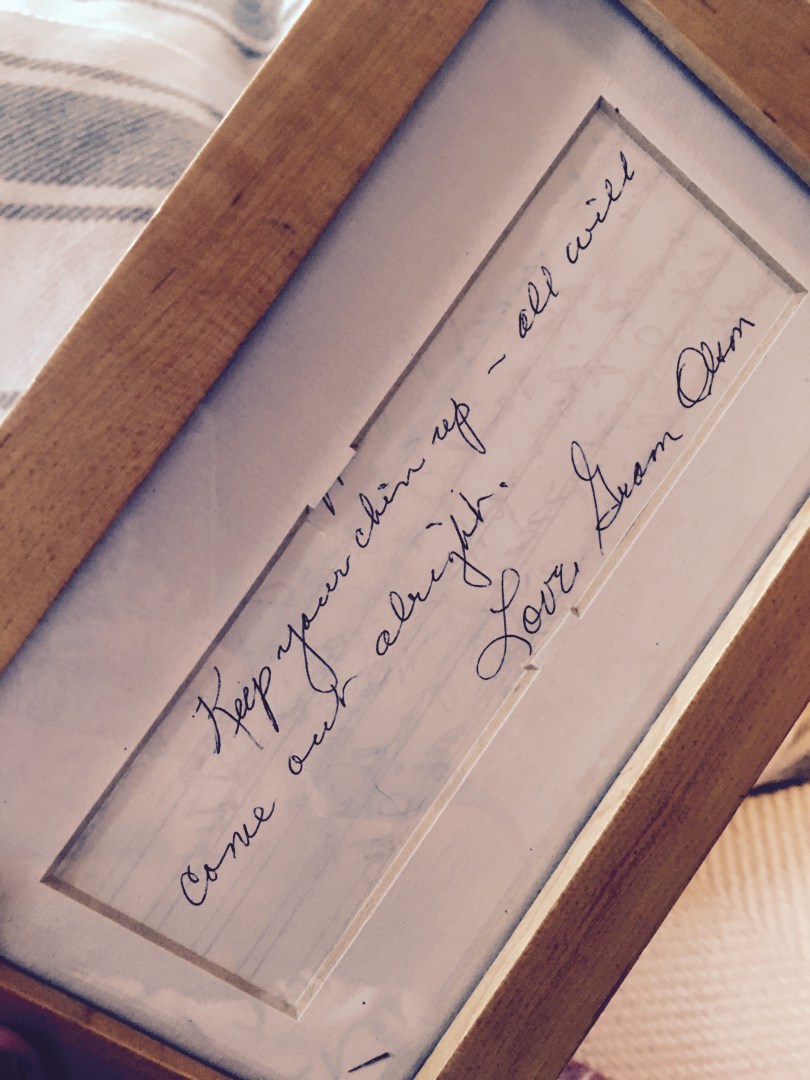 Keep your chin up - all will
come out alright.
Love, Gram Olson